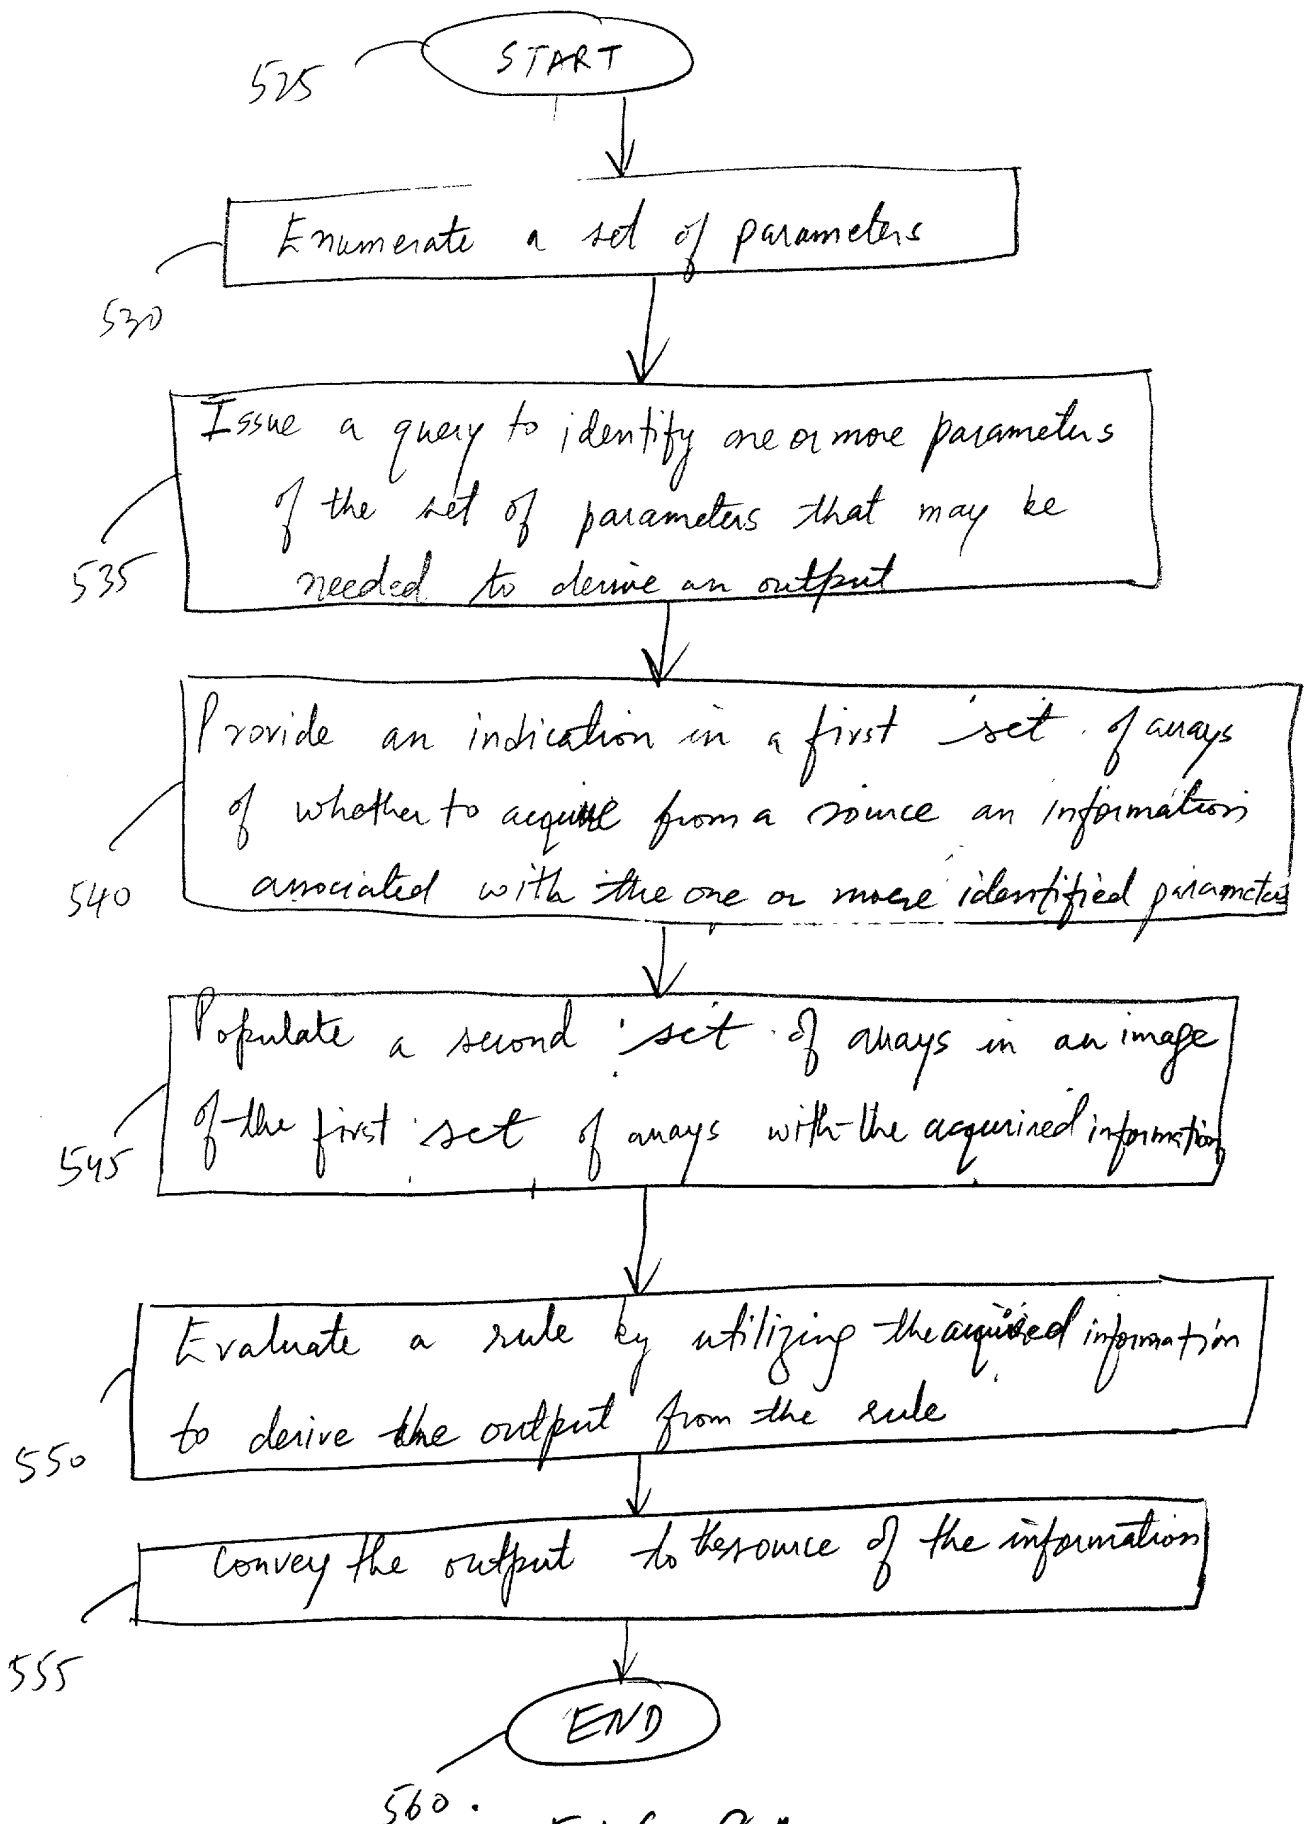 START
525
Enumerate a set of parameters
530
Issue a query to identify one or more parameters
of the set of parameters that may be
needed to derive an output
535
Provide an indication in a first set of arrays
of whether to acquire from a source an information
associated with the one or more identified parameters
540
Populate a second set of arrays in an image
of the first set of arrays with the acquired information
545
Evaluate a rule by utilizing the acquired information
to derive the output from the rule
550
Convey the output to the source of the information
555
END
560.